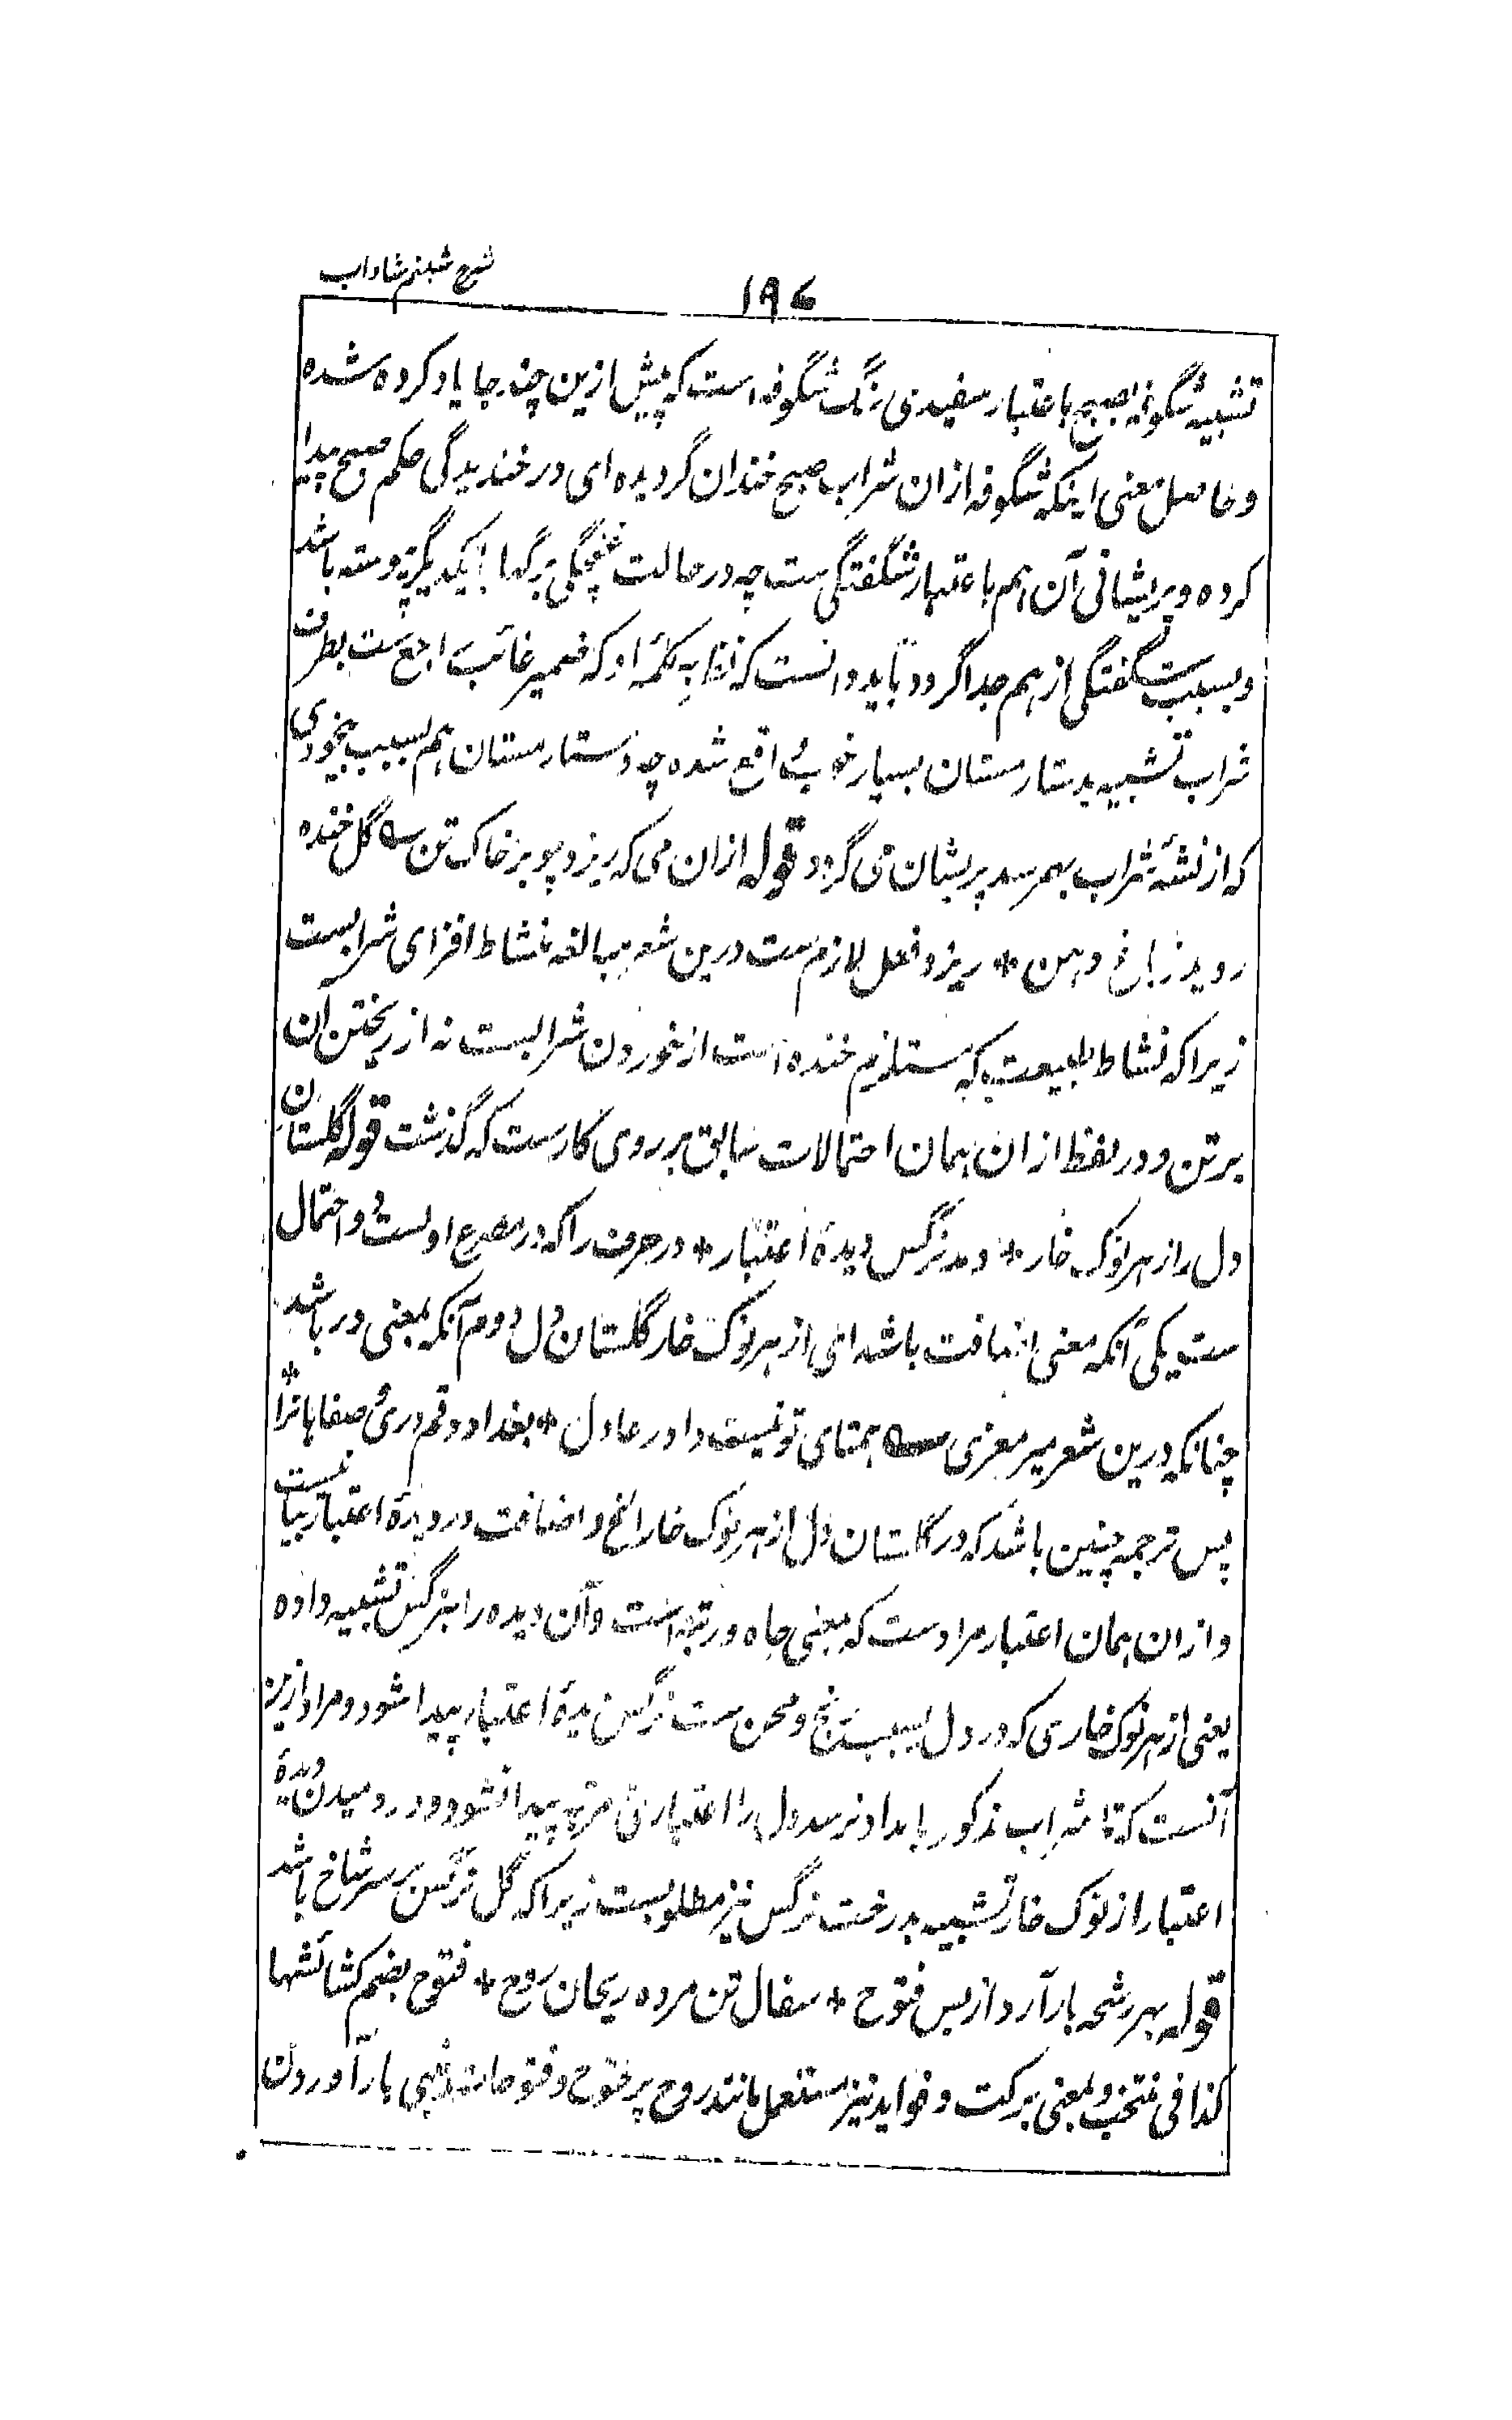 شرح شبنم شاداب
۱۹۷
تشبیه شگوفه بصبح باعتبار سفیدی رنگ شگوفه است که پیش ازین چند جا یاد کرده شده
و حاصل معنی اینکه شگوفه از ان شراب صبح خندان گردیده ای در خندیدگی حکم صبح پیدا
کرده و پریشانی آن هم باعتبار شگفتگی ست چه در حالت غنچگی برگها بایکدیگر پیوسته باشد
و بسبب شگفتگی از هم جدا گردد باید دانست که نظر به کلمهٔ او که ضمیر غائب راجع ست بطرف
شراب تشبیه بدستار مستان بسیار خوب واقع شده چه دستار مستان هم بسبب بیخودی
که از نشهٔ شراب بهمرسد پریشان می گردد قوله ازان می که ریزد چو بر خاک تن سه گل خنده
روید ز باغ دهن * ریزد فعل لازم ست درین شعر مبالغه نشاط افزای شرابست
زیرا که نشاط طبیعت که مستلزم خنده است از خوردن شرابست نه از ریختن آن
بر تن و در لفظ ازان همان احتمالات سابق بر روی کارست که گذشت قوله گلستان
دل را ز هر نوک خار * دمد نرگس دیدهٔ اعتبار * در حرف را که در مصرع اولست دو احتمال
ست یکی آنکه معنی اضافت باشد ای از هر نوک خار گلستان دل دوم آنکه بمعنی در باشد
چنانکه درین شعر میر معزی سه همتای تو نیست داور عادل * بغداد و قم و ری و صفاهانرا *
پس ترجمه چنین باشد که در گلستان دل از هر نوک خار الخ و اضافت در دیدهٔ اعتبار بیانیست
و ازان همان اعتبار مرادست که بمعنی جاه و رتبه است و آن دیده را بنرگس تشبیه داده
یعنی از هر نوک خاری که در دل بسبب رنج و محن ست نرگس دیدهٔ اعتبار پیدا شود و مراد ازین
آنست که تا شراب مذکور بامداد نرسد دل را اعتباری و مرتبه پیدا نشود و در دمیدن دیدهٔ
اعتبار از نوک خار تشبیه بدرخت نرگس نیز مطلوبست زیرا که گل نرگس بر سر شاخ باشد
قوله بهر رشحه بار آرد از بس فتوح * سفال تن مرده ریحان روح * فتوح بضم کشائشها
کذا فی منتخب و بمعنی برکت و فواید نیز مستعمل مانند روح پر فتوح و فتوحات الٰهی بار آوردن